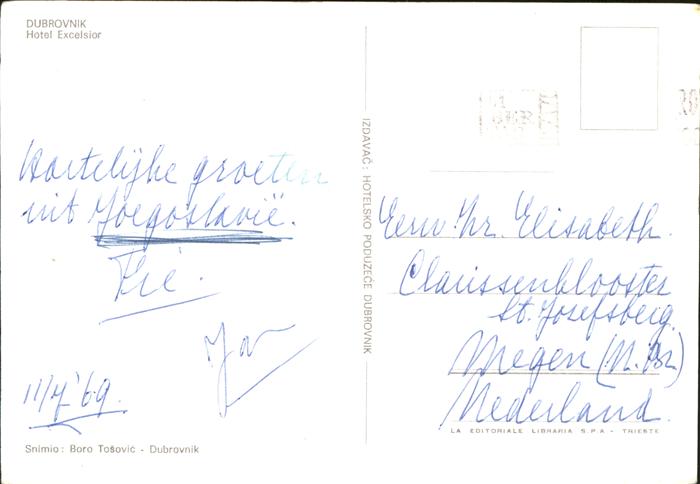 DUBROVNIK
Hotel Excelsior
Hartelijke groeten
uit Joegoslavië.
Jan
11/7 '69.
Snimio: Boro Tošović - Dubrovnik
IZDAVAČ: HOTELSKO PODUZEĆE DUBROVNIK
Eerw. Zr. Elisabeth.
Clarissenklooster
St. Josefsberg.
Megen (N. Br.)
Nederland.
LA EDITORIALE LIBRARIA S.P.A - TRIESTE